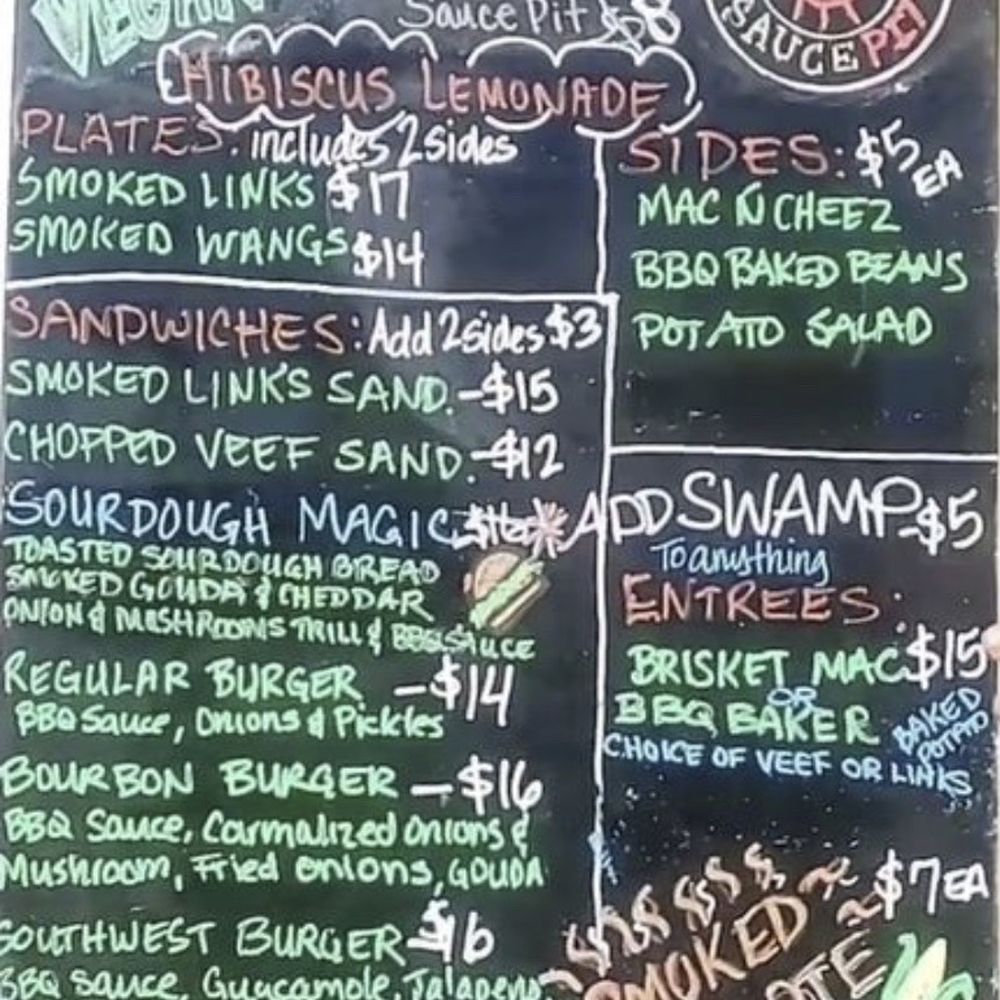 VEGAN
Sauce Pit $8
SAUCE PIT
HIBISCUS LEMONADE
PLATES: includes 2 sides
SMOKED LINKS $17
SMOKED WANGS $14
SANDWICHES: Add 2 sides $3
SMOKED LINKS SAND. - $15
CHOPPED VEEF SAND. - $12
SOURDOUGH MAGIC
TOASTED SOURDOUGH BREAD
SMOKED GOUDA & CHEDDAR
ONION & MUSHROOMS TRILL & BBQ SAUCE
REGULAR BURGER - $14
BBQ Sauce, Onions & Pickles
BOURBON BURGER - $16
BBQ Sauce, Carmalized Onions &
Mushroom, Fried Onions, GOUDA
SOUTHWEST BURGER - $16
BBQ Sauce, Guacamole, Jalapeno,
SIDES: $5 EA
MAC N CHEEZ
BBQ BAKED BEANS
POTATO SALAD
ADD SWAMP $5
To anything
ENTREES:
BRISKET MAC $15
OR
BBQ BAKER BAKED POTATO
CHOICE OF VEEF OR LINKS
$7 EA
SMOKED